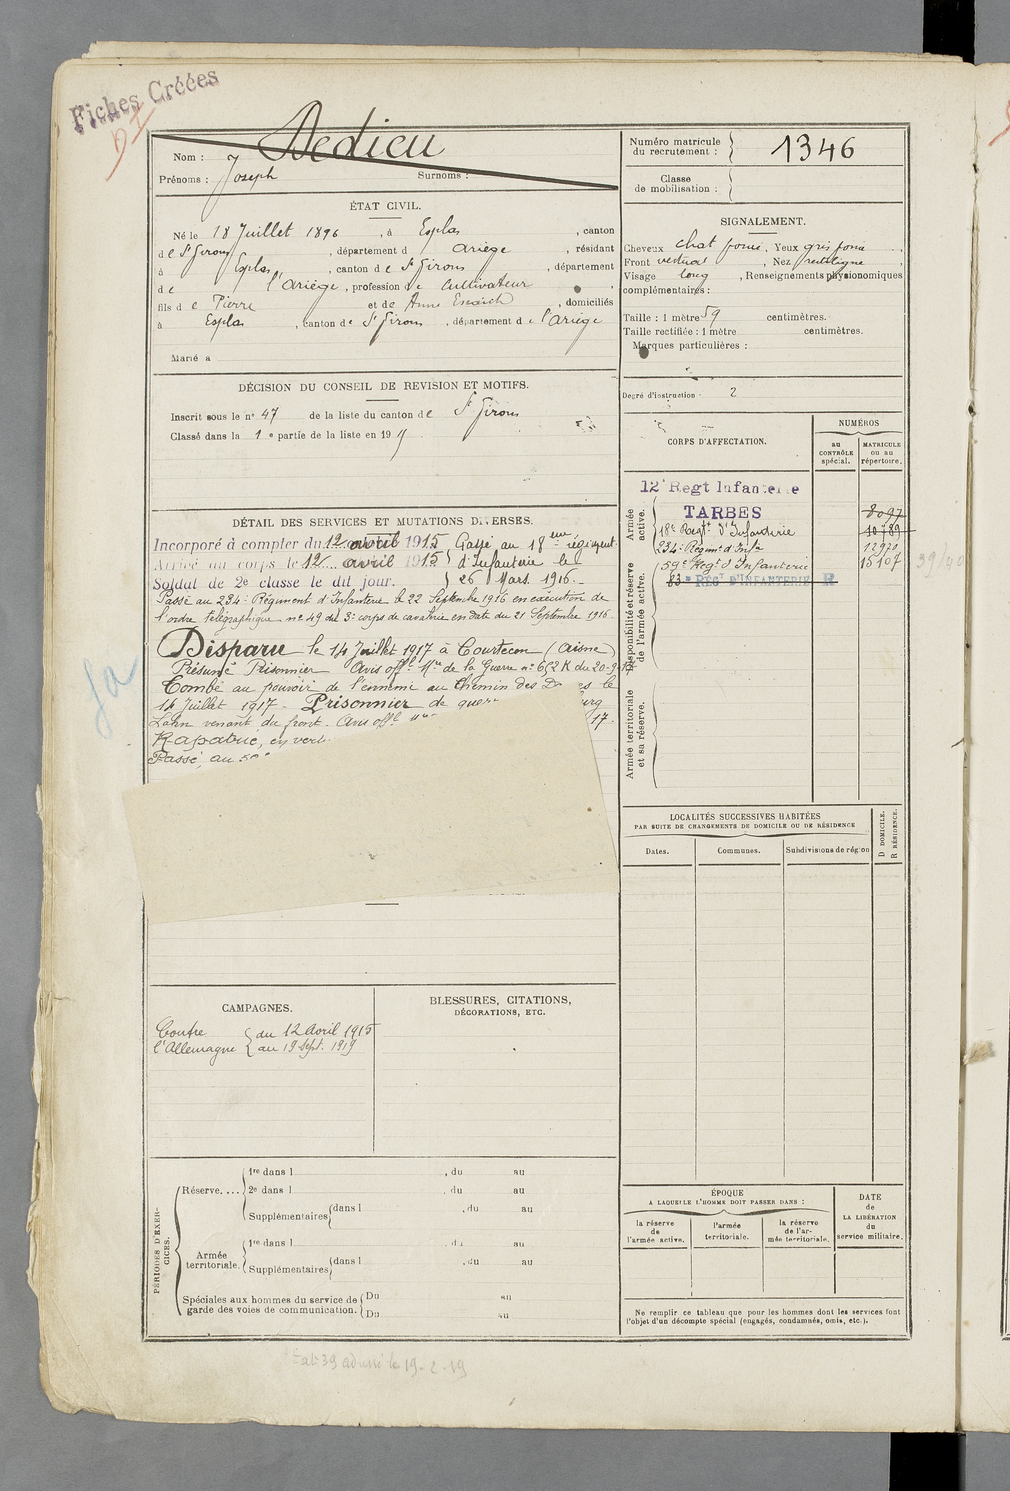 Fiches Créées
Dedieu
Nom :
Prénoms : Joseph Surnoms :
Numéro matricule
du recrutement : 1346
Classe
de mobilisation :
ÉTAT CIVIL.
Né le 18 Juillet 1896, à Esplas, canton
de St Girons, département d Ariège, résidant
à Esplas, canton de St Girons, département
de l'Ariège, profession de Cultivateur
fils de Pierre et de Anne Escaich, domiciliés
à Esplas, canton de St Girons, département de l'Ariège
Marié à
SIGNALEMENT.
Cheveux chat foncé, Yeux gris foncé,
Front vertical, Nez rectiligne,
Visage long, Renseignements physionomiques
complémentaires :
Taille : 1 mètre 59 centimètres.
Taille rectifiée : 1 mètre centimètres.
Marques particulières :
Degré d'instruction - 2
DÉCISION DU CONSEIL DE REVISION ET MOTIFS.
Inscrit sous le n° 47 de la liste du canton de St Girons
Classé dans la 1e partie de la liste en 19
CORPS D'AFFECTATION.
NUMÉROS
au
CONTRÔLE
spécial.
MATRICULE
ou au
répertoire.
Armée
active.
12e Regt Infanterie
TARBES 8097
18e Regt d'Infanterie 10789
234e Régimt d'Infie 12920
59e Regt d'Infanterie 15107
39/40
83e RÉGT D'INFANTERIE R
Disponibilité et réserve
de l'armée active.
Armée territoriale
et sa réserve.
DÉTAIL DES SERVICES ET MUTATIONS DIVERSES.
Incorporé à compter du 12 avril 1915 Passé au 18eme régiment
Arrivé au corps le 12 avril 1915 d'Infanterie le
Soldat de 2e classe le dit jour. 26 Mars 1916.
Passé au 234e Régiment d'Infanterie le 22 Septembre 1916 en exécution de
l'ordre télégraphique n° 49 du 3e corps de cavalerie en date du 21 Septembre 1916
Disparu le 14 Juillet 1917 à Courtecon (Aisne)
Présumé Prisonnier Avis offel Mre de la Guerre n° 652 K du 20-9-17
Tombé au pouvoir de l'ennemi au Chemin des D es le
14 Juillet 1917. Prisonnier de guer urg
Lahn venant du front. Avis offel 17.
Rapatrié, en vert
Passé au 5
LOCALITÉS SUCCESSIVES HABITÉES
PAR SUITE DE CHANGEMENTS DE DOMICILE OU DE RÉSIDENCE
Dates.
Communes.
Subdivisions de région
D DOMICILE.
R RÉSIDENCE.
CAMPAGNES.
Contre du 12 Avril 1915
l'Allemagne au 19 Sept. 1919
BLESSURES, CITATIONS,
DÉCORATIONS, ETC.
PÉRIODES D'EXERCICES.
Réserve....
1re dans l , du au
2e dans l , du au
Supplémentaires dans l , du au
Armée
territoriale.
1re dans l , du au
Supplémentaires dans l , du au
Spéciales aux hommes du service de
garde des voies de communication.
Du au
Du au
ÉPOQUE
A LAQUELLE L'HOMME DOIT PASSER DANS :
la réserve
de
l'armée active.
l'armée
territoriale.
la réserve
de l'ar-
mée territoriale.
DATE
de
LA LIBÉRATION
du
service militaire.
Ne remplir ce tableau que pour les hommes dont les services font
l'objet d'un décompte spécial (engagés, condamnés, omis, etc.).
Etat 39 adressé le 19-2-19